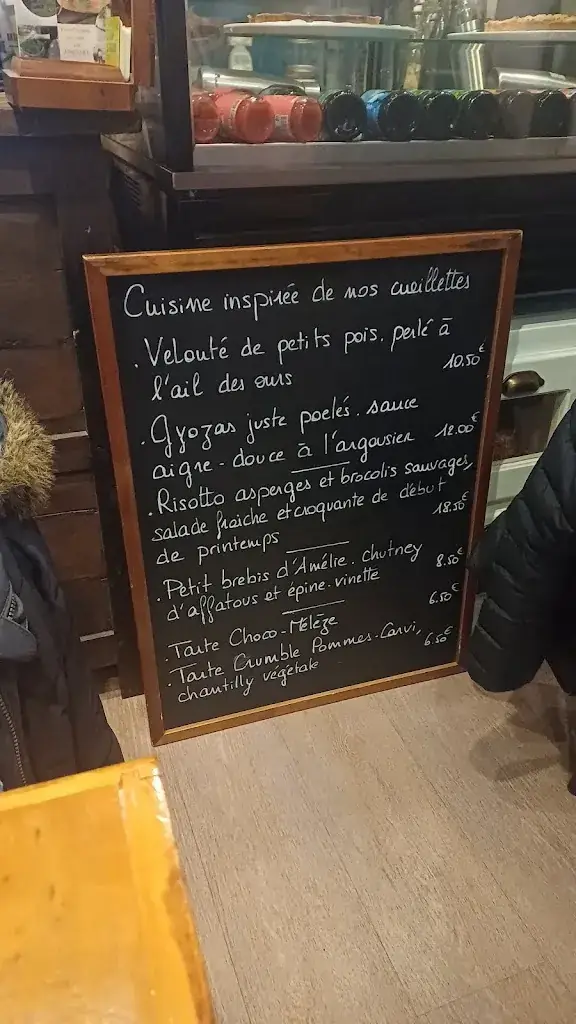 Cuisine inspirée de nos cueillettes
. Velouté de petits pois. perlé à
l'ail des ours 10.50€
. Gyozas juste poelés. sauce
aigre-douce à l'argousier 12.00€
. Risotto asperges et brocolis sauvages,
salade fraiche et croquante de début
de printemps 18.50€
. Petit brebis d'Amélie. chutney
d'affatous et épine-vinette 8.50€
. Tarte Choco-Mélèze 6.50€
. Tarte Crumble Pommes-Carvi,
chantilly végétale 6.50€